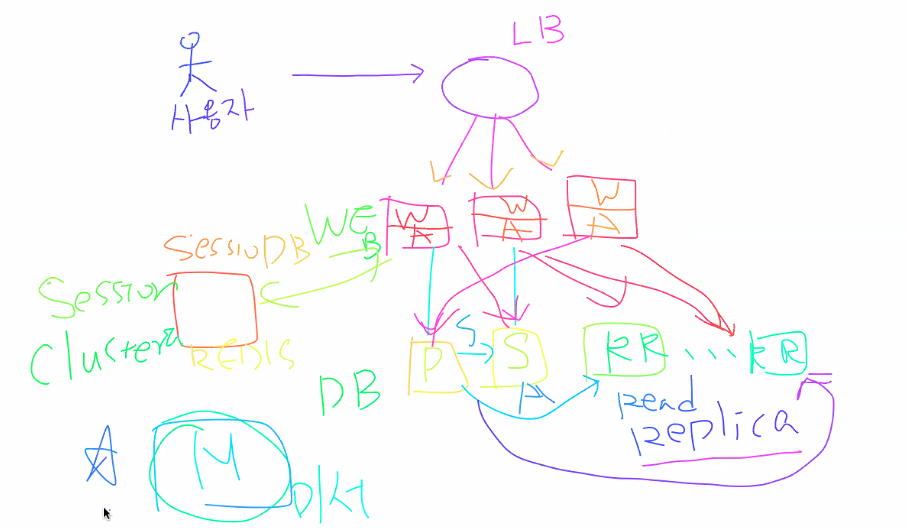 LB
사용자
W A
W A
W A
WEB
SessionDB
Session
Clustera
REDIS
DB
P
S
S
A
RR
...
RR
read
replica
M